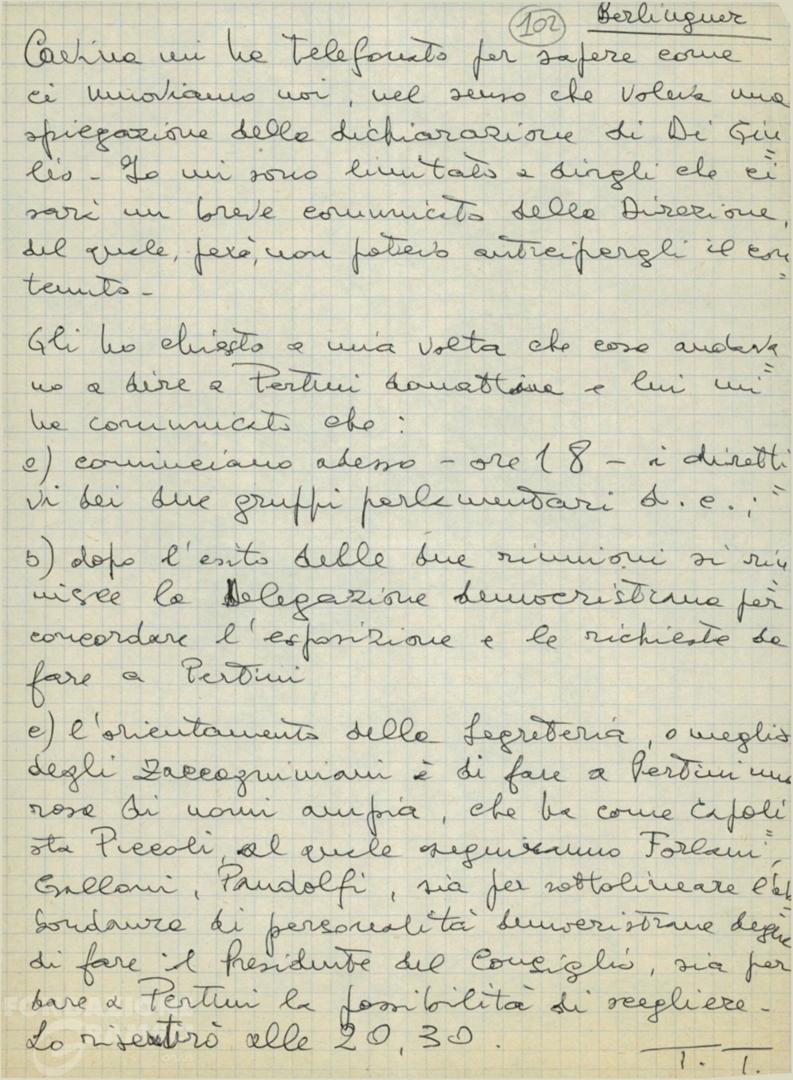 102 Berlinguer
Cavina mi ha telefonato per sapere come
ci muoviamo noi, nel senso che voleva una
spiegazione della dichiarazione di Di Giu=
lio - Io mi sono limitato a dirgli che ci
sarà un breve comunicato della Direzione,
del quale, però, non potevo anticipargli il con=
tenuto -
Gli ho chiesto a mia volta che cosa andava=
no a dire a Pertini domattina e lui mi
ha comunicato che:
a) cominciano adesso - ore 18 - i diretti=
vi dei due gruppi parlamentari d.c.;
b) dopo l'esito delle due riunioni si riu=
nisce la Delegazione democristiana per
concordare l'esposizione e le richieste da
fare a Pertini
c) l'orientamento della Segreteria, o meglio
degli Zaccagniniani è di fare a Pertini una
rosa di nomi ampia, che ha come capoli=
sta Piccoli, al quale seguiranno Forlani,
Galloni, Pandolfi, sia per sottolineare l'ab=
bondanza di personalità democristiane degne
di fare il Presidente del Consiglio, sia per
dare a Pertini la possibilità di scegliere -
Lo risentirò alle 20,30.
T. T.